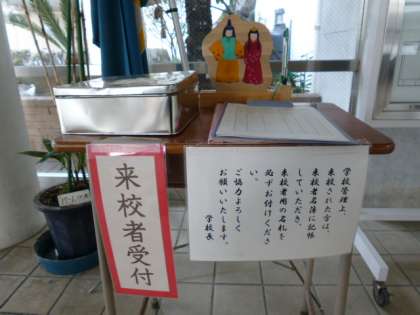 来校者受付
学校管理上、
来校された方は、
来校者名簿に記帳
していただき、
来校者用の名札を
必ずお付けくださ
い。
ご協力よろしく
お願いいたします。
学校長